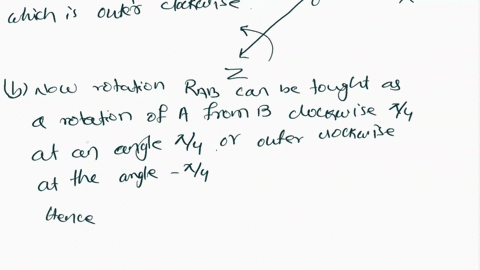 which is outer clockwise.
Z
(b) Now rotation RAB can be tought as
a rotation of A from B clockwise π/4
at an angle π/4 or outer clockwise
at the angle -π/4
Hence